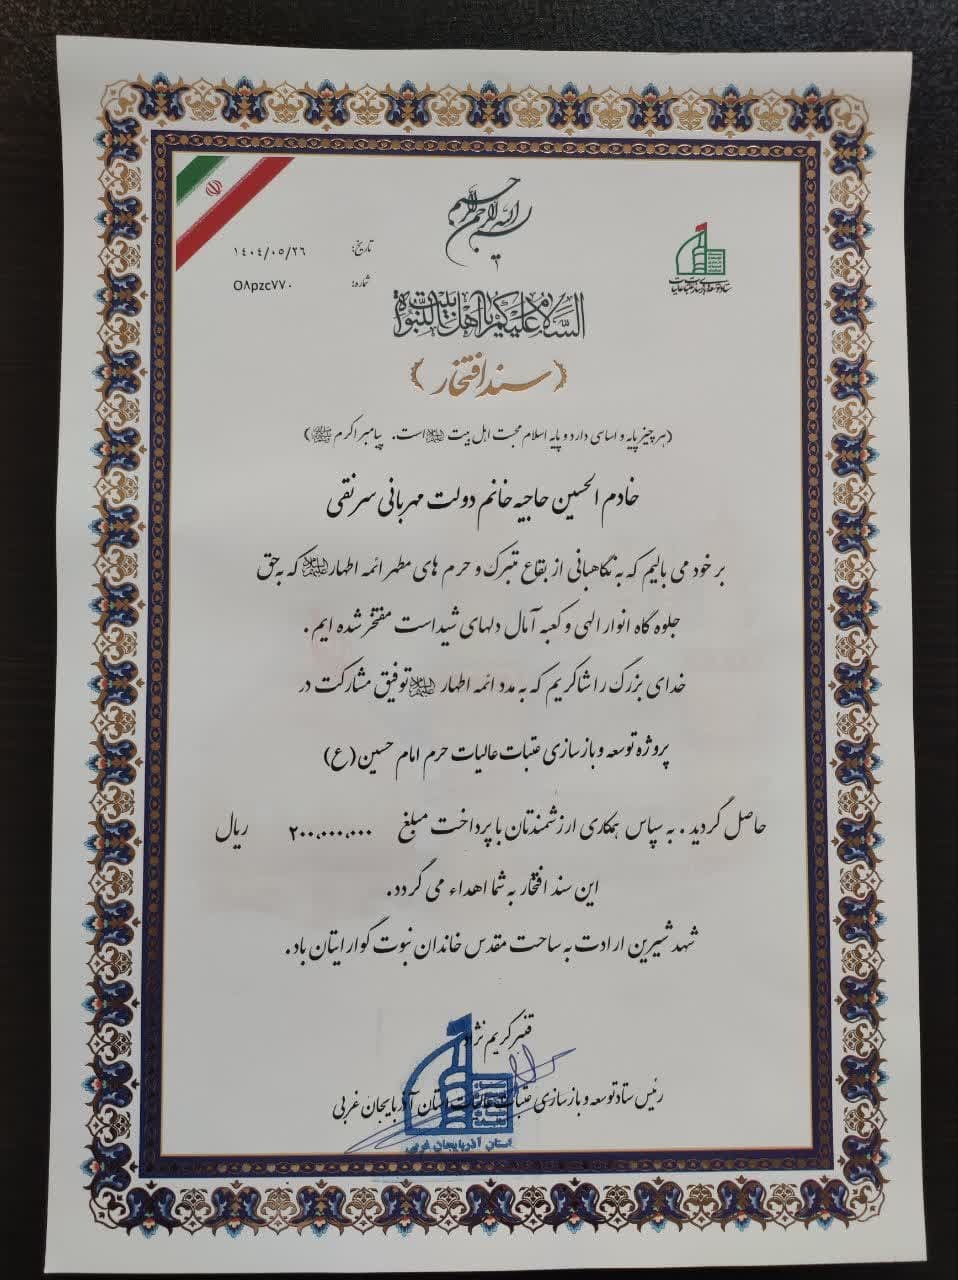 بسم الله الرحمن الرحیم
تاریخ: ۱۴۰۴/۰۵/۲۶
شماره: O۸pzc۷۷۰
ستاد توسعه و بازسازی عتبات عالیات
السَّلامُ عَلَیْکُمْ یا أَهْلَ بَیْتِ النُّبُوَّة
(سند افتخار)
(هر چیز پایه و اساسی دارد و پایه اسلام محبت اهل بیت علیهم السلام است. پیامبر اکرم ﷺ)
خادم الحسین حاجیه خانم دولت مهربانی سرنقی
بر خود می بالیم که به نگاهبانی از بقاع متبرک و حرم های مطهر ائمه اطهار علیهم السلام که به حق
جلوه گاه انوار الهی و کعبه آمال دلهای شیداست مفتخر شده ایم.
خدای بزرگ را شاکریم که به مدد ائمه اطهار علیهم السلام توفیق مشارکت در
پروژه توسعه و بازسازی عتبات عالیات حرم امام حسین (ع)
حاصل گردید. به سپاس همکاری ارزشمندتان با پرداخت مبلغ ۲۰۰,۰۰۰,۰۰۰ ریال
این سند افتخار به شما اهداء می گردد.
شهد شیرین ارادت به ساحت مقدس خاندان نبوت گوارایتان باد.
قنبر کریم نژاد
رئیس ستاد توسعه و بازسازی عتبات عالیات استان آذربایجان غربی
استان آذربایجان غربی